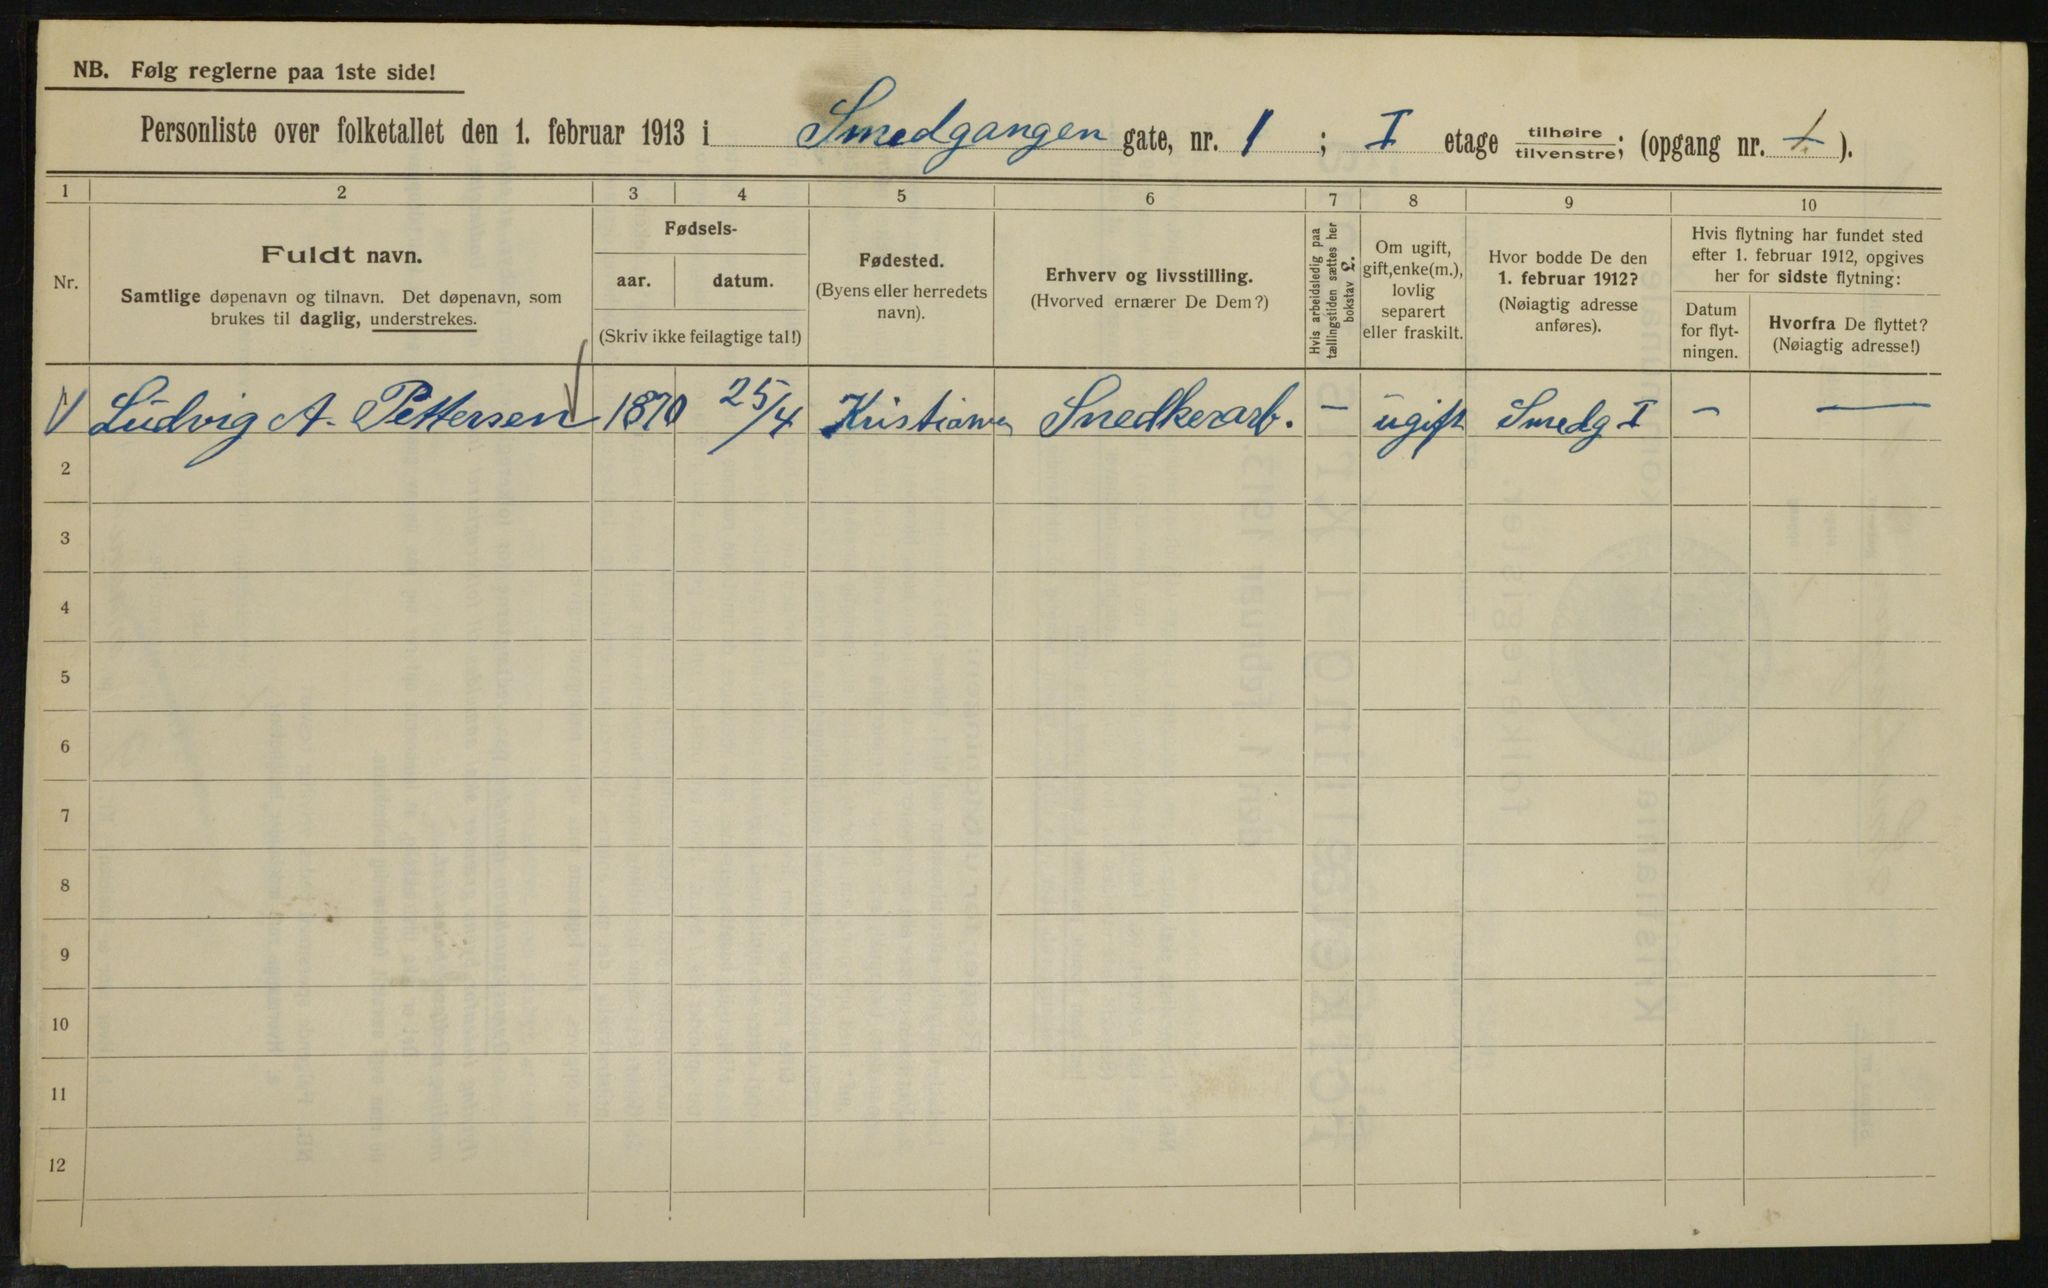 NB. Følg reglerne paa 1ste side!
Personliste over folketallet den 1. februar 1913 i Smedgangen gate, nr. 1 ; I etage tilhøire tilvenstre; (opgang nr. ).
1 2 3 4 5 6 7 8 9 10
Nr.
Fuldt navn.
Samtlige døpenavn og tilnavn. Det døpenavn, som
brukes til daglig, understrekes.
Fødsels-
aar. datum.
(Skriv ikke feilagtige tal!)
Fødested.
(Byens eller herredets
navn).
Erhverv og livsstilling.
(Hvorved ernærer De Dem?)
Hvis arbeidsledig paa
tællingstiden sættes her
bokstav L.
Om ugift,
gift, enke(m.),
lovlig
separert
eller fraskilt.
Hvor bodde De den
1. februar 1912?
(Nøiagtig adresse
anføres).
Hvis flytning har fundet sted
efter 1. februar 1912, opgives
her for sidste flytning:
Datum
for flyt-
ningen.
Hvorfra De flyttet?
(Nøiagtig adresse!)
Ludvig A. Pettersen 1870 25/4 Kristiania Snedkerarb. - ugift Smedg I - —
2
3
4
5
6
7
8
9
10
11
12